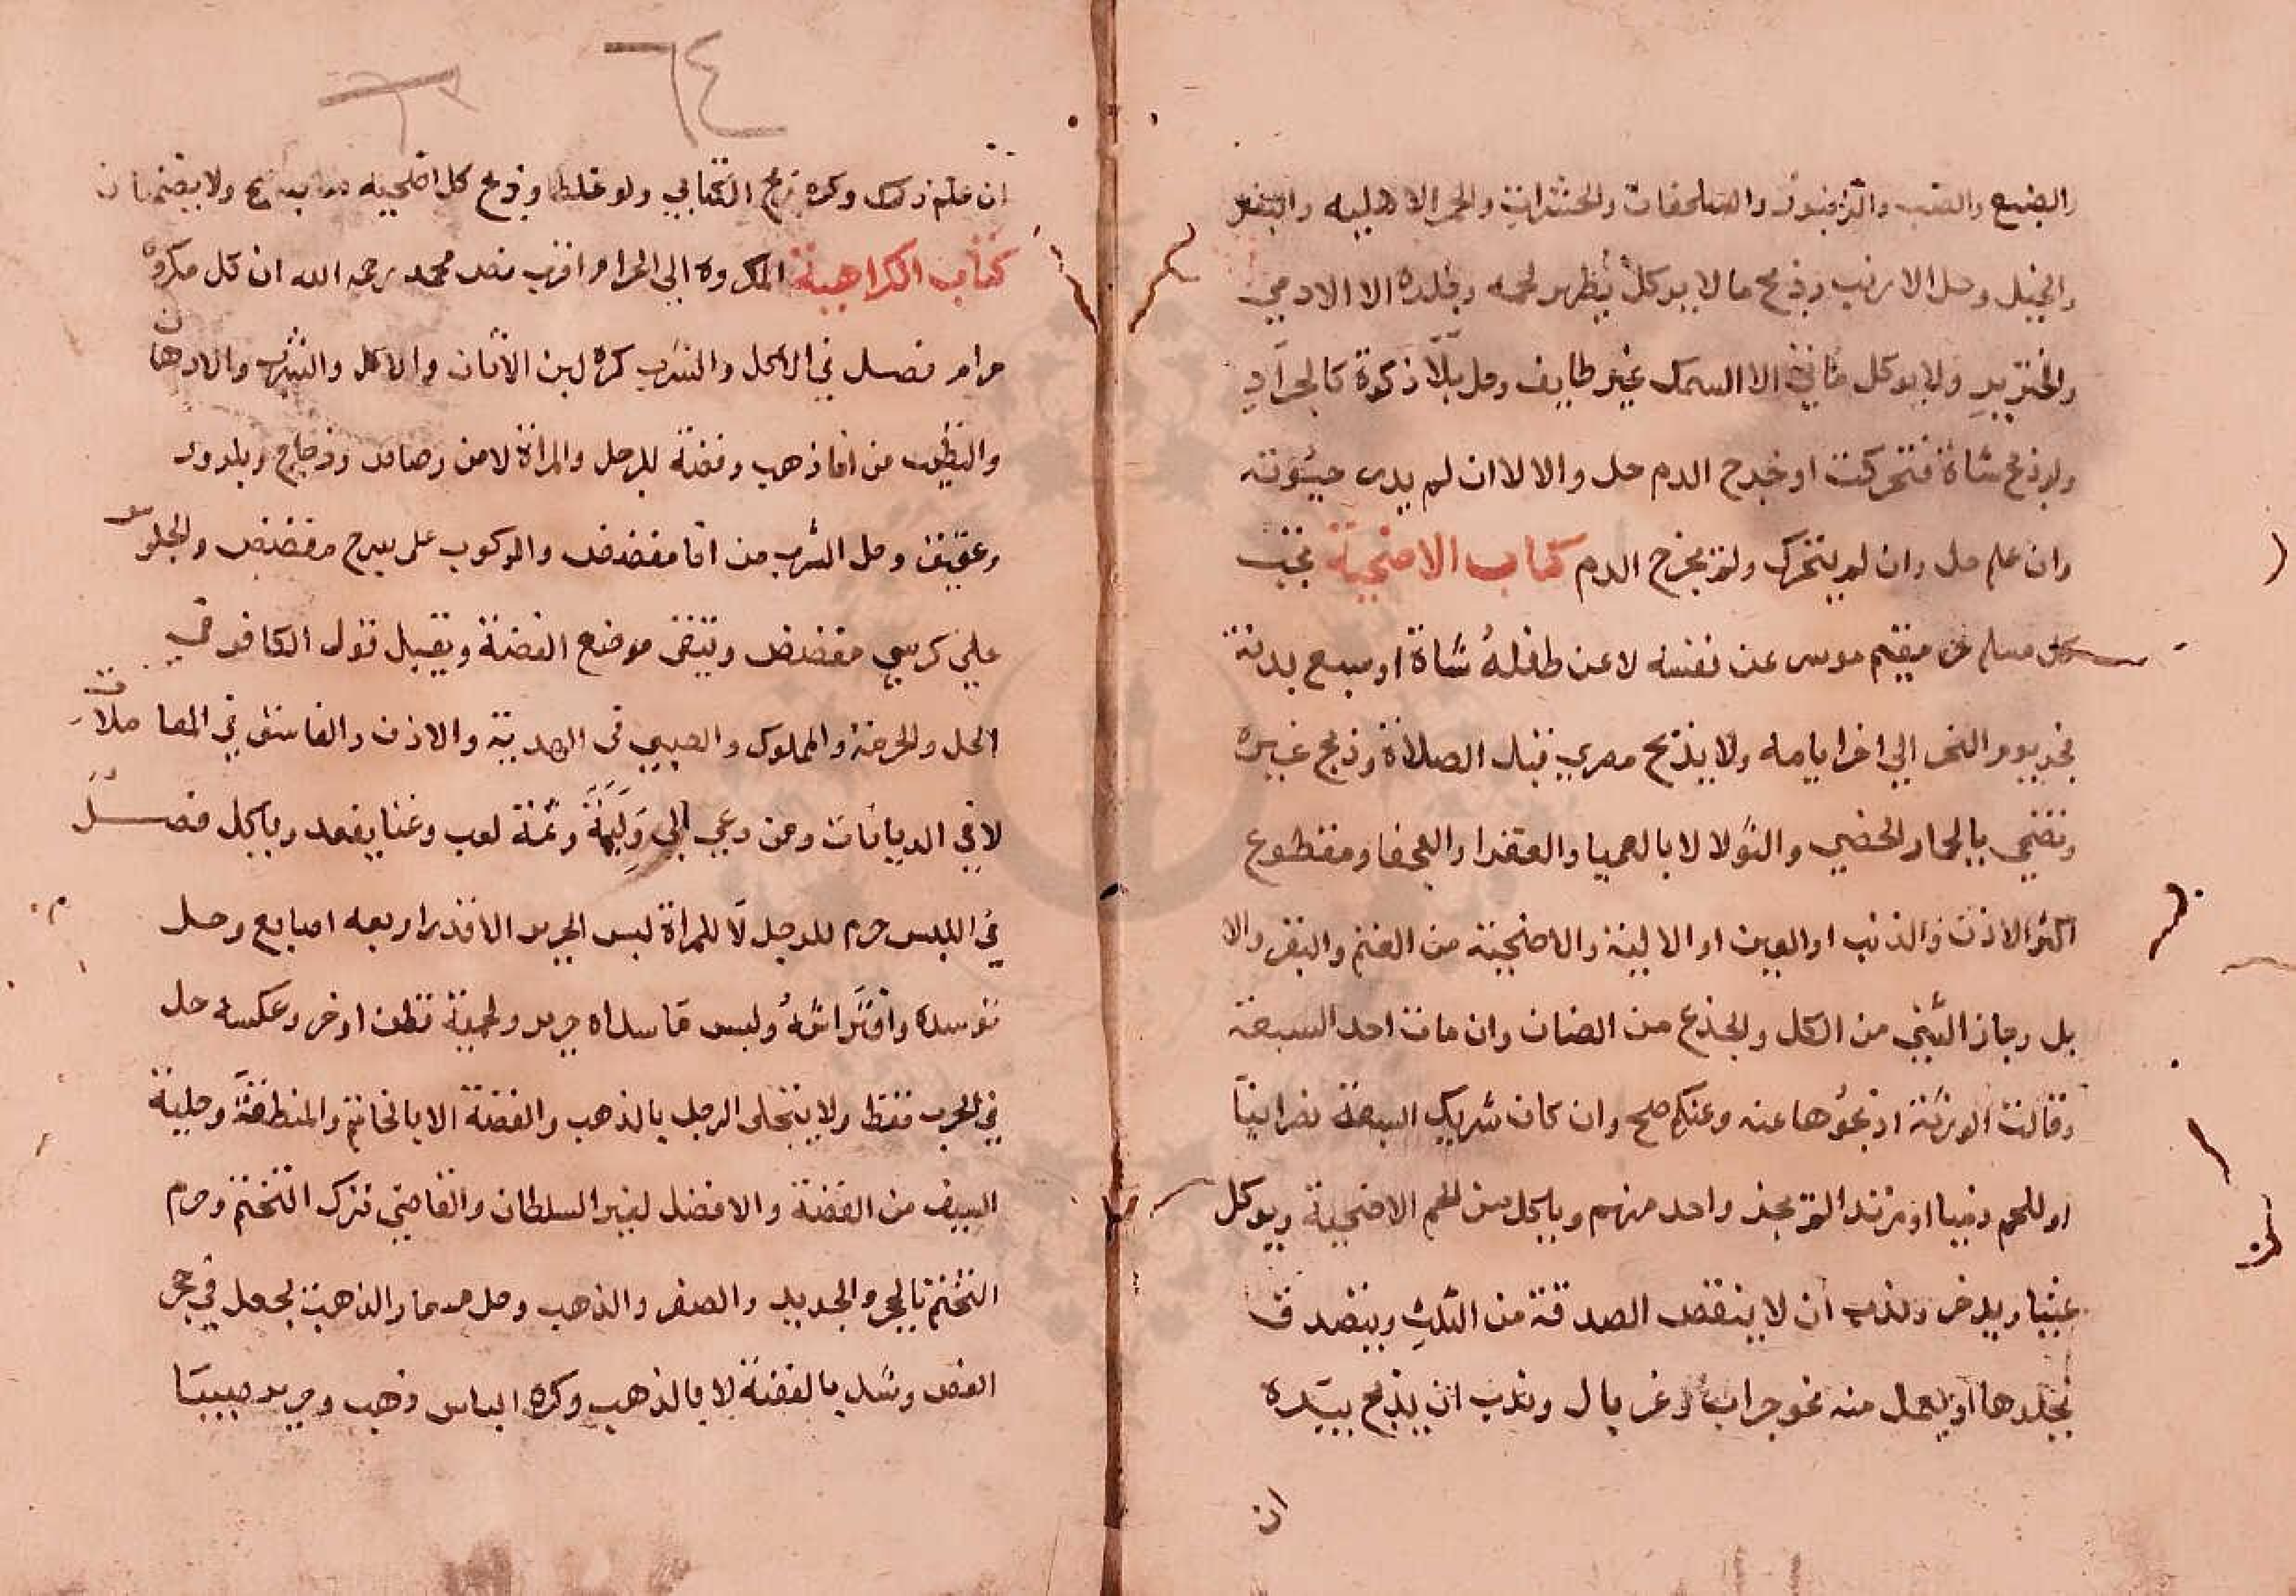 والضبع والضب والزنبور والسلحفاة والحشرات والحمر الاهلية والبغل
والخيل وحل الارنب وذبح ما لا يوكل يطهر لحمه وجلده الا الادمي
والخنزير ولا يوكل مائي الا السمك غير طايف وحل بلا ذكوة كالجراد
ولو ذبح شاة فتحركت او خرج الدم حل والا لا ان لم يدر حيوته
وان علم حل وان لم يتحرك ولم يخرج الدم كتاب الاضحية تجب
مسلم مقيم موسر عن نفسه لا عن طفله شاة او سبع بدنة
فجر يوم النحر الي اخر ايامه ولا يذبح مصري قبل الصلاة وذبح غيره
وتضحي بالجما والخصي والتولا لا بالعميا والعورا والعجفا ومقطوع
اكثر الاذن والذنب او العين او الالية والاضحية من الغنم والبقر والا
بل وجاز الثني من الكل والجذع من الضان وان مات احد السبعة
وقالت الورثة اذبحوها عنه وعنكم صح وان كان شريك السبعة نصرانيا
او للحم ذميا او مرتد الم يجز واحد منهم وياكل من لحم الاضحية ويوكل
غنيا ويدخر وندب ان لا ينقص الصدقة من الثلث ويتصدق
بجلدها او يعمل منه نحو جراب او غربال وندب ان يذبح بيده
ان
٦٤
ان علم ذلك وكره ذبح الكتابي ولو غلطا وذبح كل اضحية صاحبه صح ولا يضمنان
كتاب الكراهية المكروه الي الحرام اقرب نص محمد رحمه الله ان كل مكروه
حرام فصل في الاكل والشرب كره لبن الاتان والاكل والشرب والادهان
والتطيب من انا ذهب وفضة للرجل والمراة لا من رصاص وزجاج وبلور
وعقيق وحل الشرب من انا مفضض والركوب علي سرج مفضض والجلوس
علي كرسي مفضض ويتقي موضع الفضة ويقبل قول الكافر في
الحل والحرمة والمملوك والصبي في الهدية والاذن والفاسق في المعاملات
لا في الديانات ومن دعي الي وليمة وثمة لعب وغنا يقعد وياكل فصل
في اللبس حرم للرجل لا للمراة لبس الحرير الا قدر اربعة اصابع وحل
توسده وافتراشه ولبس ما سداه حرير ولحمته قطن او خز وعكسه حل
في الحرب فقط ولا يتحلي الرجل بالذهب والفضة الا بالخاتم والمنطقة وحلية
السيف من الفضة والافضل لغير السلطان والقاضي ترك التختم وحرم
التختم بالحجر والحديد والصفر والذهب وحل مسمار الذهب يجعل في حجر
الفص وشد بالفضة لا بالذهب وكره الباس ذهب وحرير صبيا